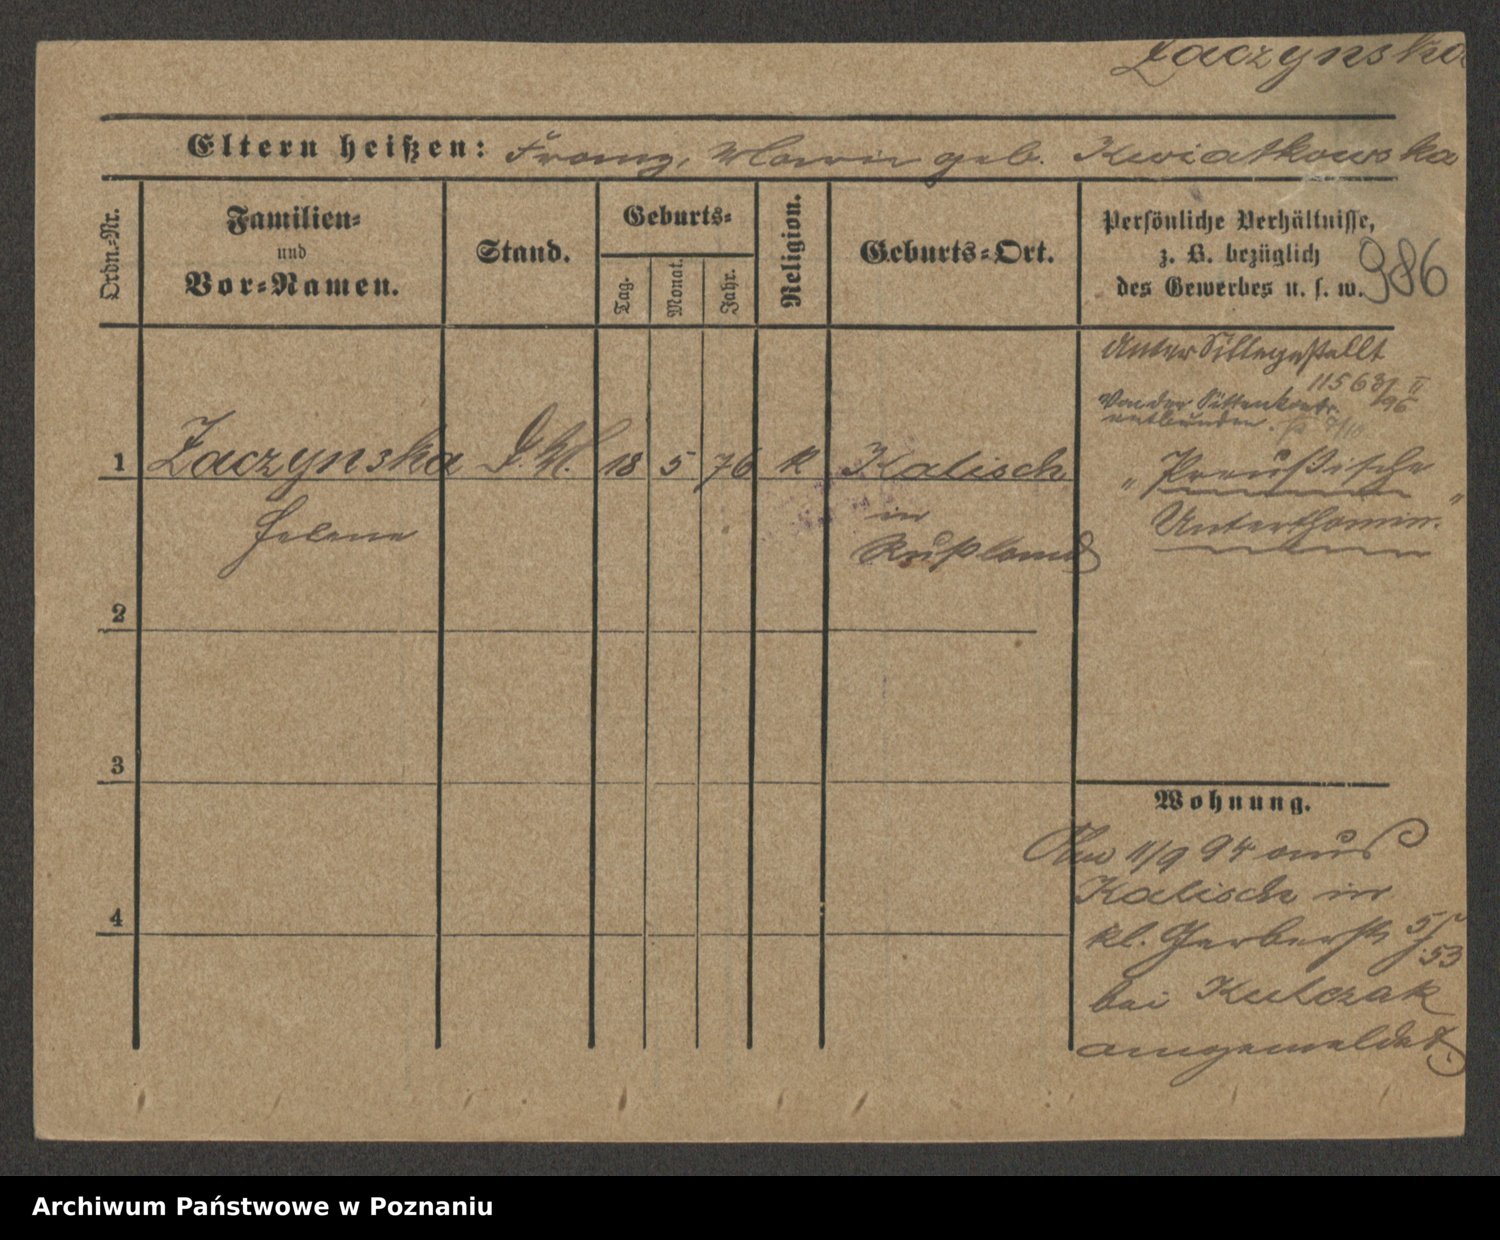 Zaczynska
Eltern heißen: Franz, Marie geb. Kwiatkowska
Ordn.-Nr.
Familien-
und
Vor-Namen.
Stand.
Geburts-
Tag.
Monat.
Jahr.
Religion.
Geburts-Ort.
Persönliche Verhältnisse,
z. B. bezüglich
des Gewerbes u. s. w.
986
Unter Sitte gestellt
11563/96 II
Von der Sittenkontr.
entbunden.
1 Zaczynska D. M. 18 5 76 k Kalisch
Helene
in
Rußland
„Preußische
Unterthanin.“
2
3
4
Wohnung.
Am 11/9 94 aus
Kalisch in
kl. Gerberstr 5/
53
bei Kulczak
angemeldet.
Archiwum Państwowe w Poznaniu